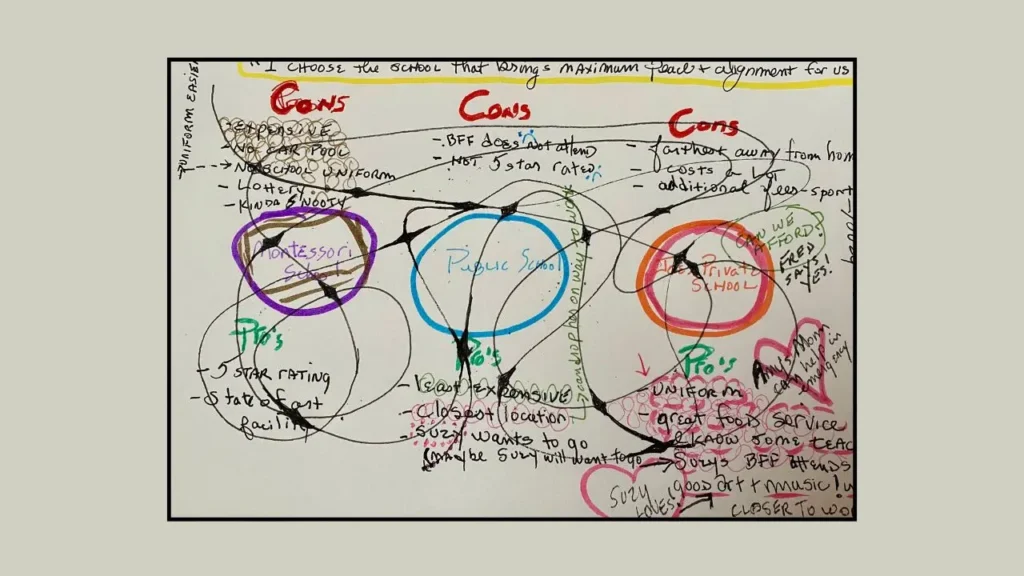 "I CHOOSE the SCHOOL that brings MAXIMUM peace + alignment for us
UNIFORM EASIER
CONS
- EXPENSIVE
- NO CAR POOL
- NO SCHOOL UNIFORM
- Lottery
- KINDA SNOOTY
Montessori
School
Pro's
- 5 STAR RATING
- State of art
facility
CONS
- BFF does not attend
- NOT 5 star rated
Public School
I can drop her on way to work
Pro's
- least EXPENSIVE
- Closest location
- SUZY wants to go
(MAYBE SUZY will want to go
CONS
- farthest away from hom
- costs a LOT
- additional fees - sport
CAN WE
AFFORD?
FRED
SAYS!
YES!
Private
SCHOOL
Pro's
Amy's Mom
can help in
emergency
UNIFORM
- great food service
- KNOW SOME TEAC
→ SUZYS BFF attends
good art + music!
CLOSER TO WO
SUZY
LOVES!